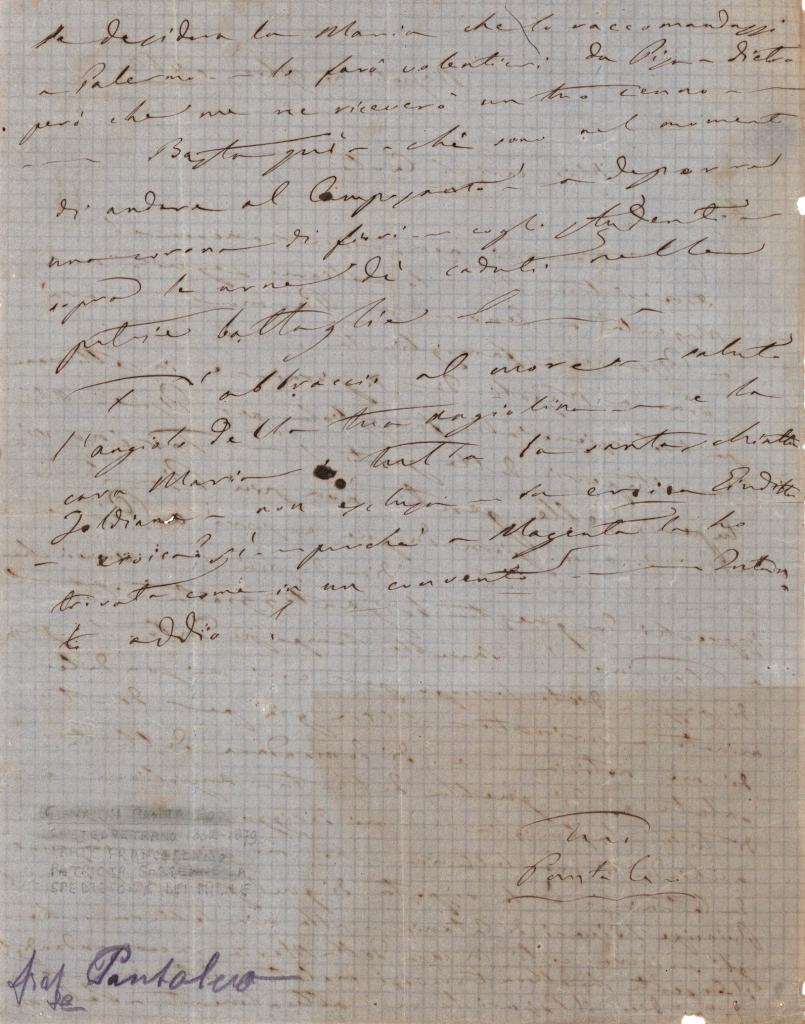 se desidera la Maria che lo raccomandassi
a Palermo — lo farò volentieri da Pisa — dietro
però che me ne riceverò un tuo cenno —
— Basta quì — chè sono nel momento
di andare al Camposanto a deporre
una corona di fiori — cogli studenti —
sopra le urne dè caduti nelle
patrie battaglie
T'abbraccio al cuore — saluta
l'angiolo della tua Angiolina — e la
cara Maria tutta la santa schiatta
Joldiana — non esclusa — la eroica Giuditta
— eroica? sì — perchè a Magenta la ho
trovata come in un convento — Intan
to addio!
Tuo
Pantaleo
GIOVANNI PANTALEO
CASTELVETRANO 1832-1879
FRATE FRANCESCANO
PATRIOTA
SPEDIZIONE DEI MILLE
Pantaleo